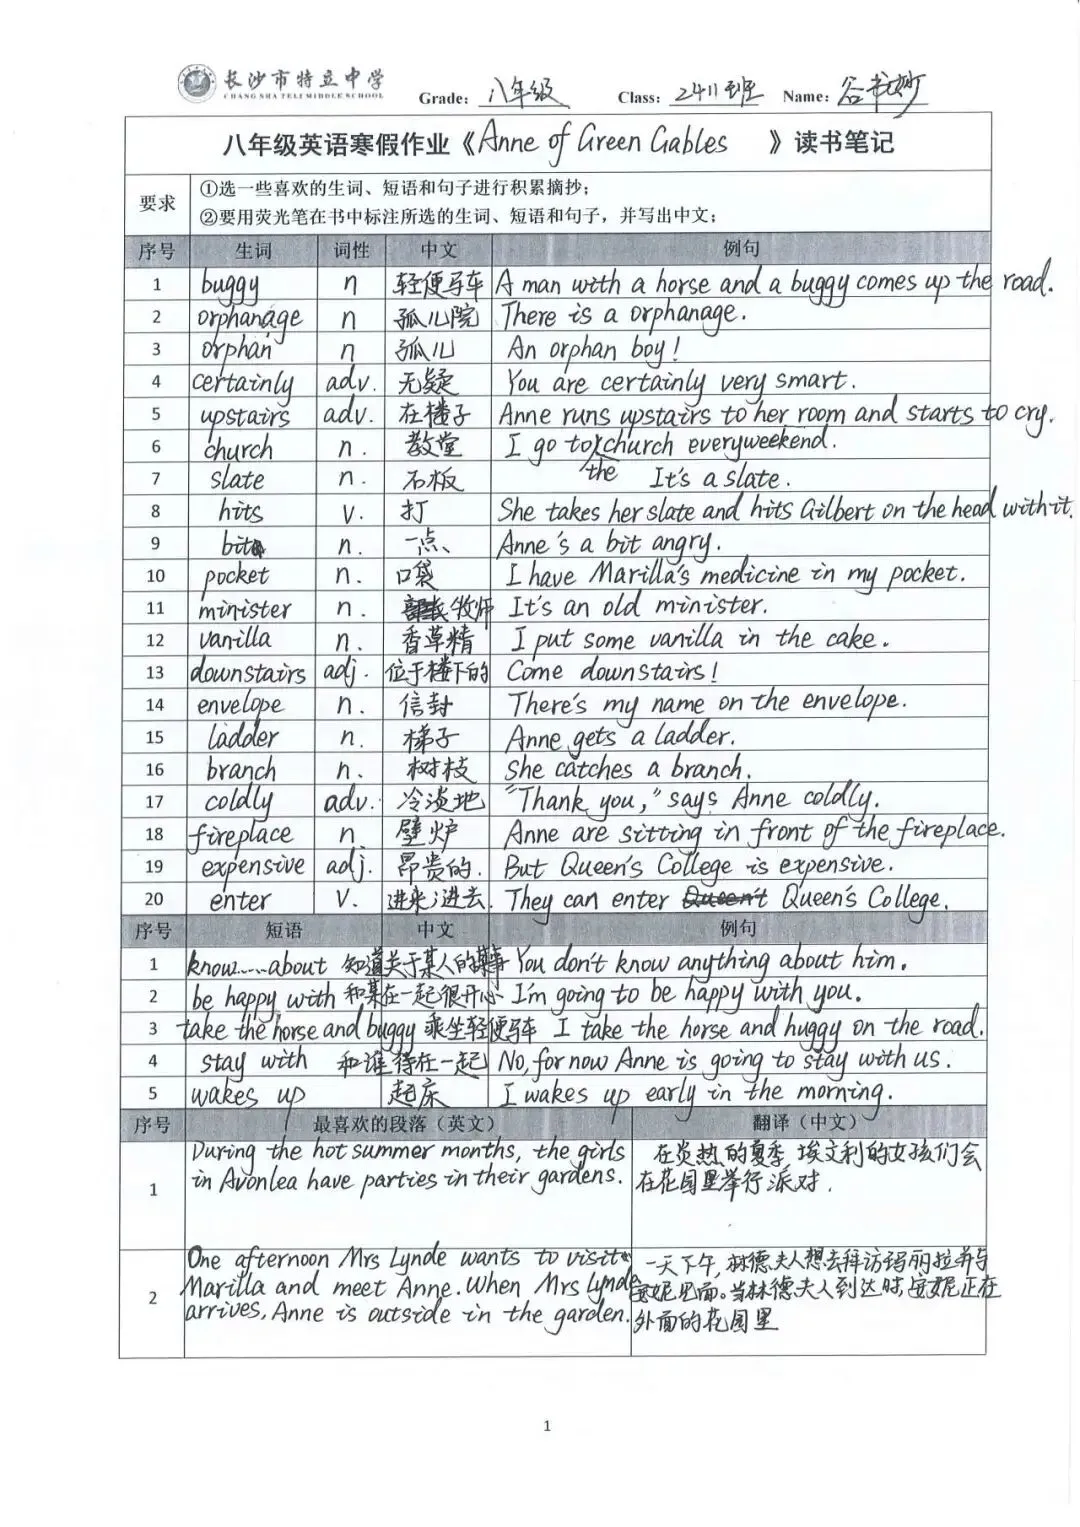 长沙市特立中学
CHANG SHA TELI MIDDLE SCHOOL
Grade: 八年级 Class: 2411班 Name: 谷书妙
八年级英语寒假作业《Anne of Green Gables》读书笔记
要求
①选一些喜欢的生词、短语和句子进行积累摘抄；
②要用荧光笔在书中标注所选的生词、短语和句子，并写出中文；
序号 生词 词性 中文 例句
1 buggy n 轻便马车 A man with a horse and a buggy comes up the road.
2 orphanage n 孤儿院 There is a orphanage.
3 orphan n 孤儿 An orphan boy!
4 certainly adv. 无疑 You are certainly very smart.
5 upstairs adv. 在楼子 Anne runs upstairs to her room and starts to cry.
6 church n. 教堂 I go to the church everyweekend.
7 slate n. 石板 It's a slate.
8 hits v. 打 She takes her slate and hits Gilbert on the head with it.
9 bit n. 一点、 Anne's a bit angry.
10 pocket n. 口袋 I have Marilla's medicine in my pocket.
11 minister n. 牧师 It's an old minister.
12 vanilla n. 香草精 I put some vanilla in the cake.
13 downstairs adj. 位于楼下的 Come downstairs!
14 envelope n. 信封 There's my name on the envelope.
15 ladder n. 梯子 Anne gets a ladder.
16 branch n. 树枝 She catches a branch.
17 coldly adv. 冷淡地 "Thank you," says Anne coldly.
18 fireplace n 壁炉 Anne are sitting in front of the fireplace.
19 expensive adj. 昂贵的. But Queen's College is expensive.
20 enter v. 进来;进去. They can enter Queen's College.
序号 短语 中文 例句
1 know……about 知道关于某人的 You don't know anything about him.
2 be happy with 和某在一起很开心 I'm going to be happy with you.
3 take the horse and buggy 乘坐轻便马车 I take the horse and huggy on the road.
4 stay with 和谁待在一起 No, for now Anne is going to stay with us.
5 wakes up 起床 I wakes up early in the morning.
序号 最喜欢的段落（英文） 翻译（中文）
1
During the hot summer months, the girls
in Avonlea have parties in their gardens.
在炎热的夏季,埃文利的女孩们会
在花园里举行派对.
2
One afternoon Mrs Lynde wants to visit
Marilla and meet Anne. When Mrs Lynde
arrives, Anne is outside in the garden.
一天下午,林德夫人想去拜访玛丽拉并与
安妮见面。当林德夫人到达时,安妮正在
外面的花园里
1